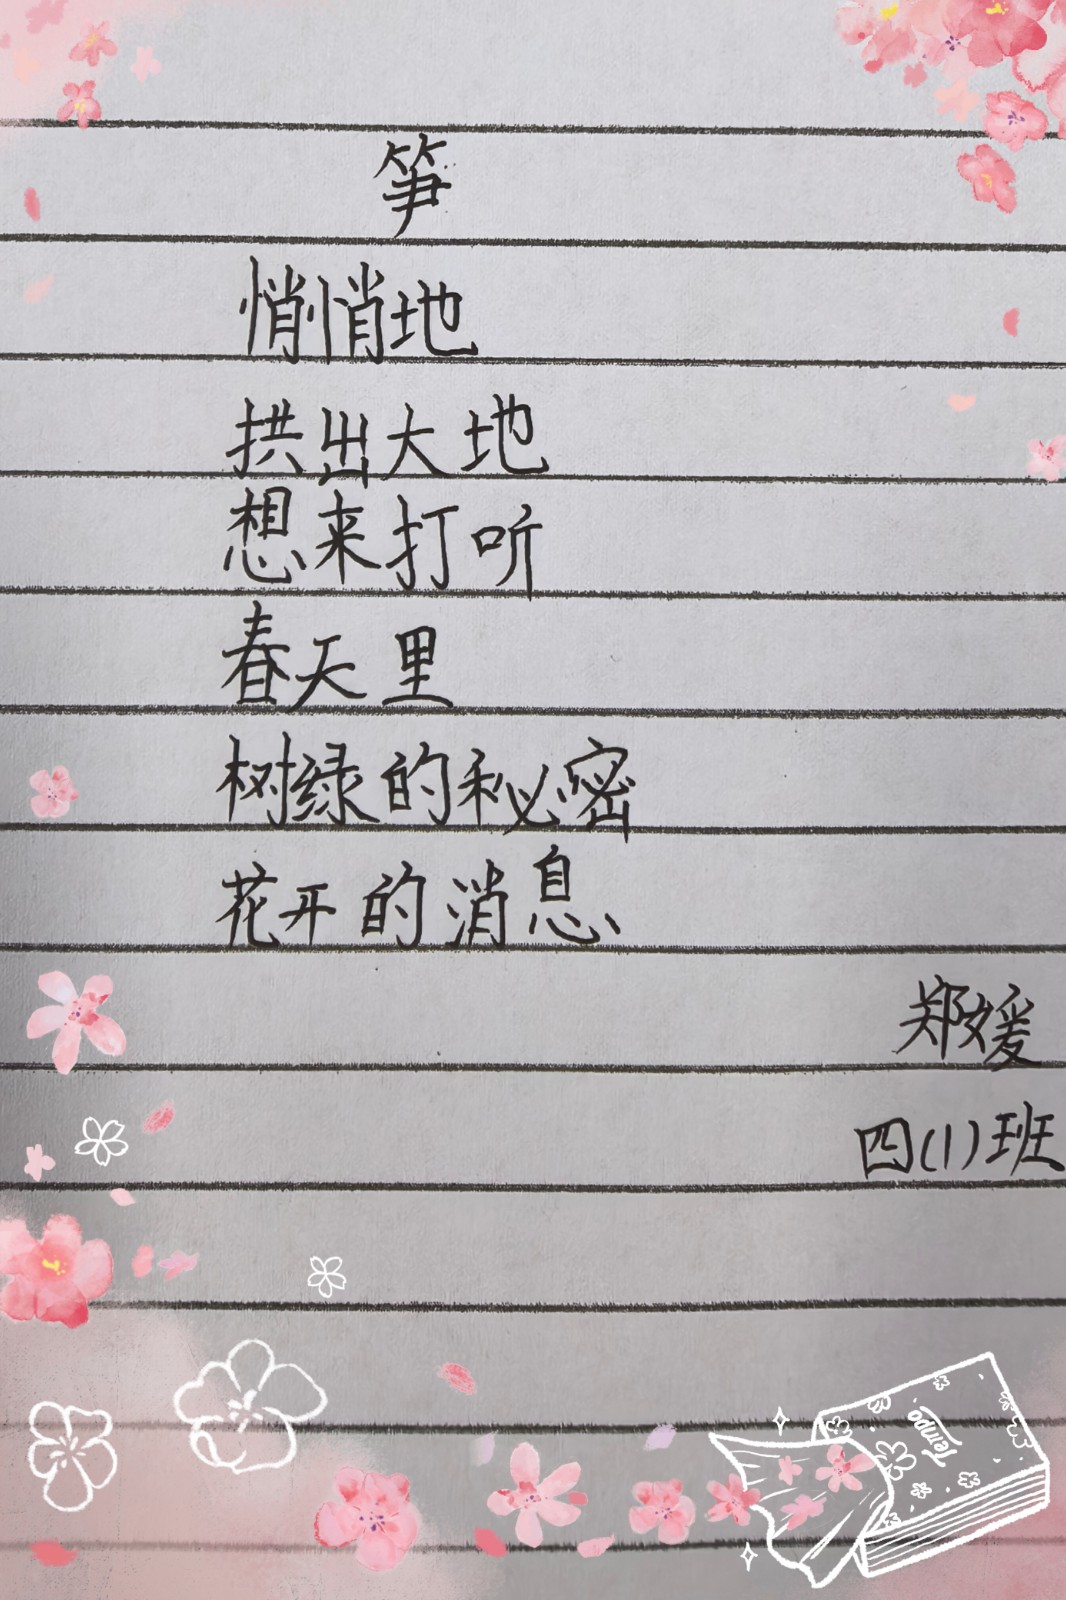 笋
悄悄地
拱出大地
想来打听
春天里
树绿的秘密
花开的消息
郑媛
四(1)班
Tempo